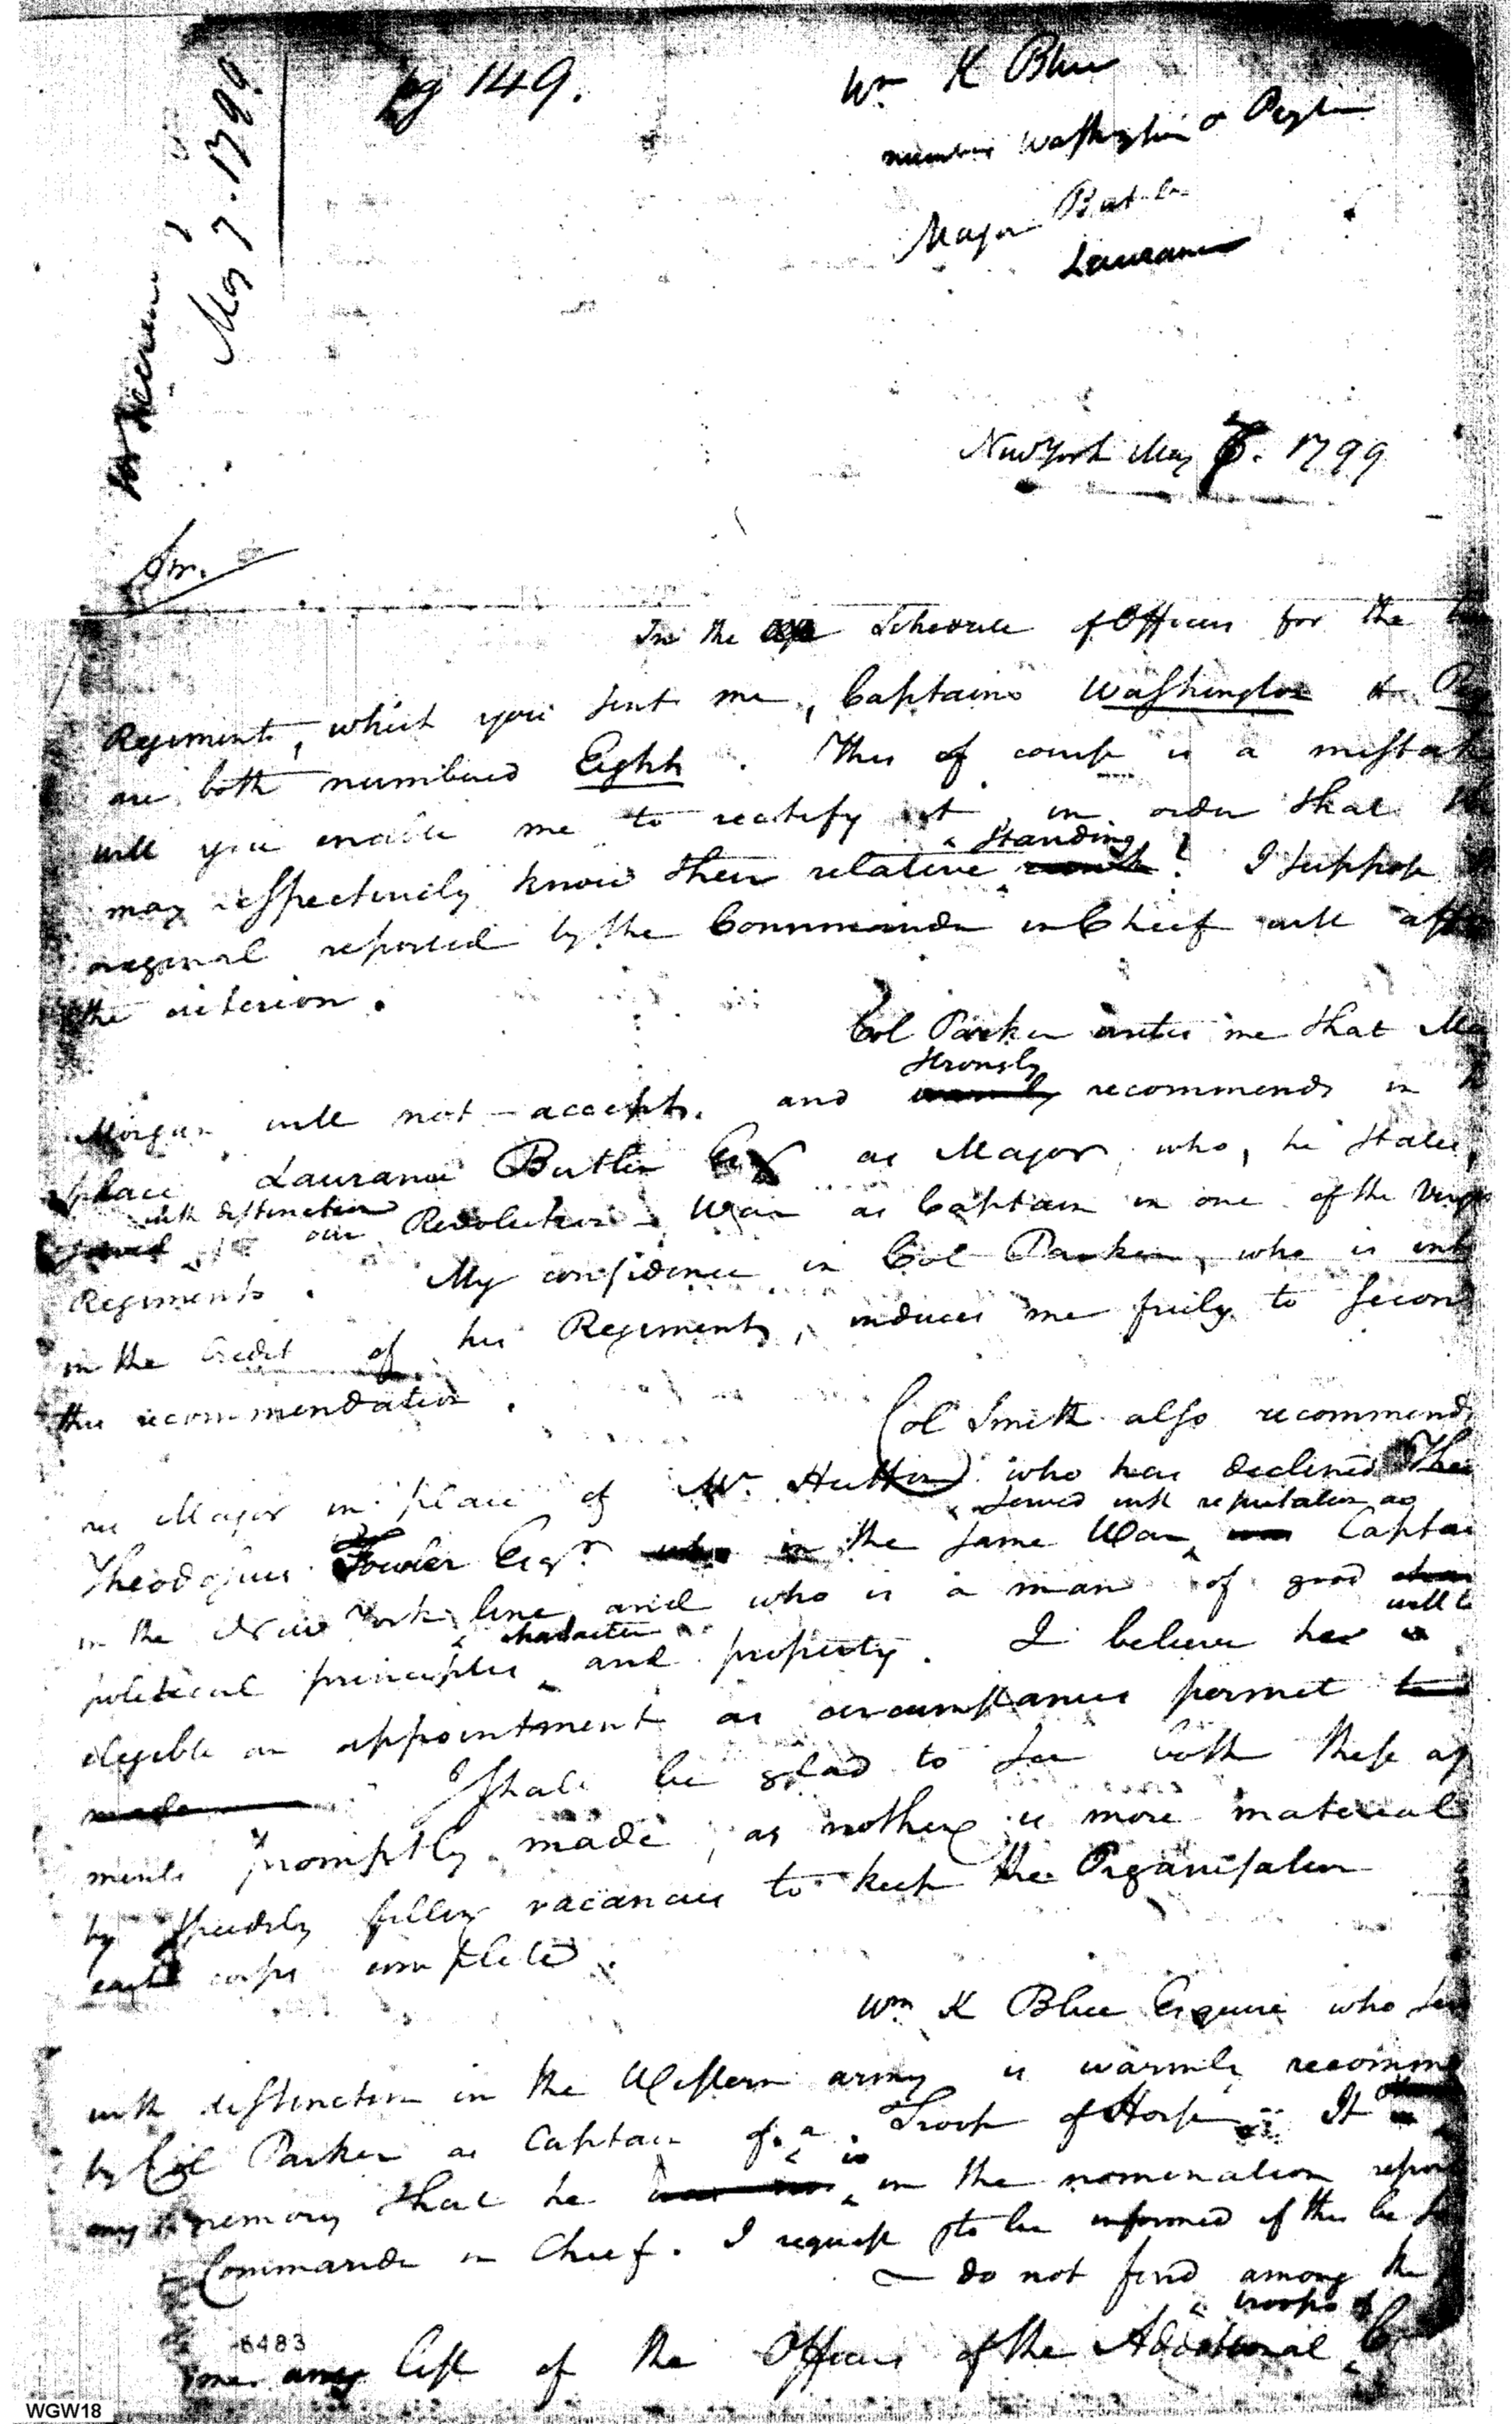 pg 149.
Wm K Blue
numbers Washington &
Major Butler
Laurance
May 7. 1799
New York May 1799
Sir.
In the Schedule of Officers for the
Regiment, which you sent me, Captains Washington &
are both numbered Eighth. This of course is a
will you enable me to rectify it, in order that
standing
may respectively know their relative rank? I suppose
original reported by the Commander in Chief will
the criterion.
Col Parker writes me that
strongly
Morgan will not accept. and warmly recommends in
place Laurance Butler Esqr as Major, who, he states,
with distinction
served our Revolution War as Captain in one of the
Regiments. My confidence in Col Parker, who is
in the credit of his Regiment, induces me freely to second
this recommendation.
Col Smith also recommends
as Major in place of Mr. who has declined
served with reputation as
Theodosius Fowler Esqr. who in the same War was Captain
in the New York line, and who is a man of good
will be
character
political principles and property. I believe
eligible an appointment as circumstances permit to
made I shall be glad to see both these
ments promptly made, as nothing is more material
by speedily filling vacancies to keep the Organisation
each corps complete.
Wm K Blue Esquire who
with distinction in the Western army is warmly
by Col Parker as Captain of a Troop of Horse. It
is
my memory that he was not in the nomination
Commander in Chief. I request to be informed if this be
do not find among the
troops of
me any list of the Officers of the Additional
6483
WGW18